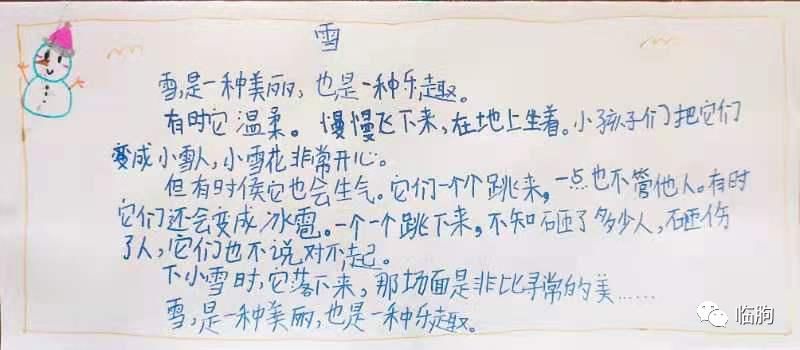 雪
雪,是一种美丽,也是一种乐趣。
有时它温柔。慢慢飞下来,在地上坐着。小孩子们把它们
变成小雪人,小雪花非常开心。
但有时侯它也会生气。它们一个个跳来,一点也不管他人。有时
它们还会变成冰雹。一个一个跳下来,不知砸了多少人,砸伤
了人,它们也不说对不起。
下小雪时,它落下来,那场面是非比寻常的美……
雪,是一种美丽,也是一种乐趣。
临朐